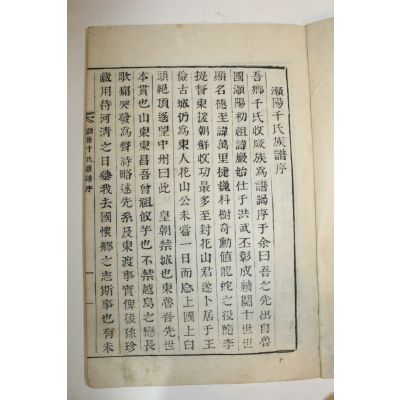 潁陽千氏族譜序
吾鄉千氏收厥族爲譜謁序于余曰吾之先出自魯
國潁陽初祖諱嚴始仕于洪武丕彰成績閱十世世
顯名德至萬里捷 科樹奇勳値龍蛇之役隨李
提督東援朝鮮收功最多至封花山君遂卜居于王
儉古城仍爲東人花山公未嘗一日而忘上國上白
頭絶頂遙望中州曰此 皇朝禁城也東魯吾先世
本貫也山東東昌吾曾祖攸芋也不禁越鳥之戀長
歌痛哭發爲聲詩略述先系及東渡事實俾後孫珍
藏用待河淸之日槩我去國懷鄕之志斯事也有未
潁陽千氏族譜序 一